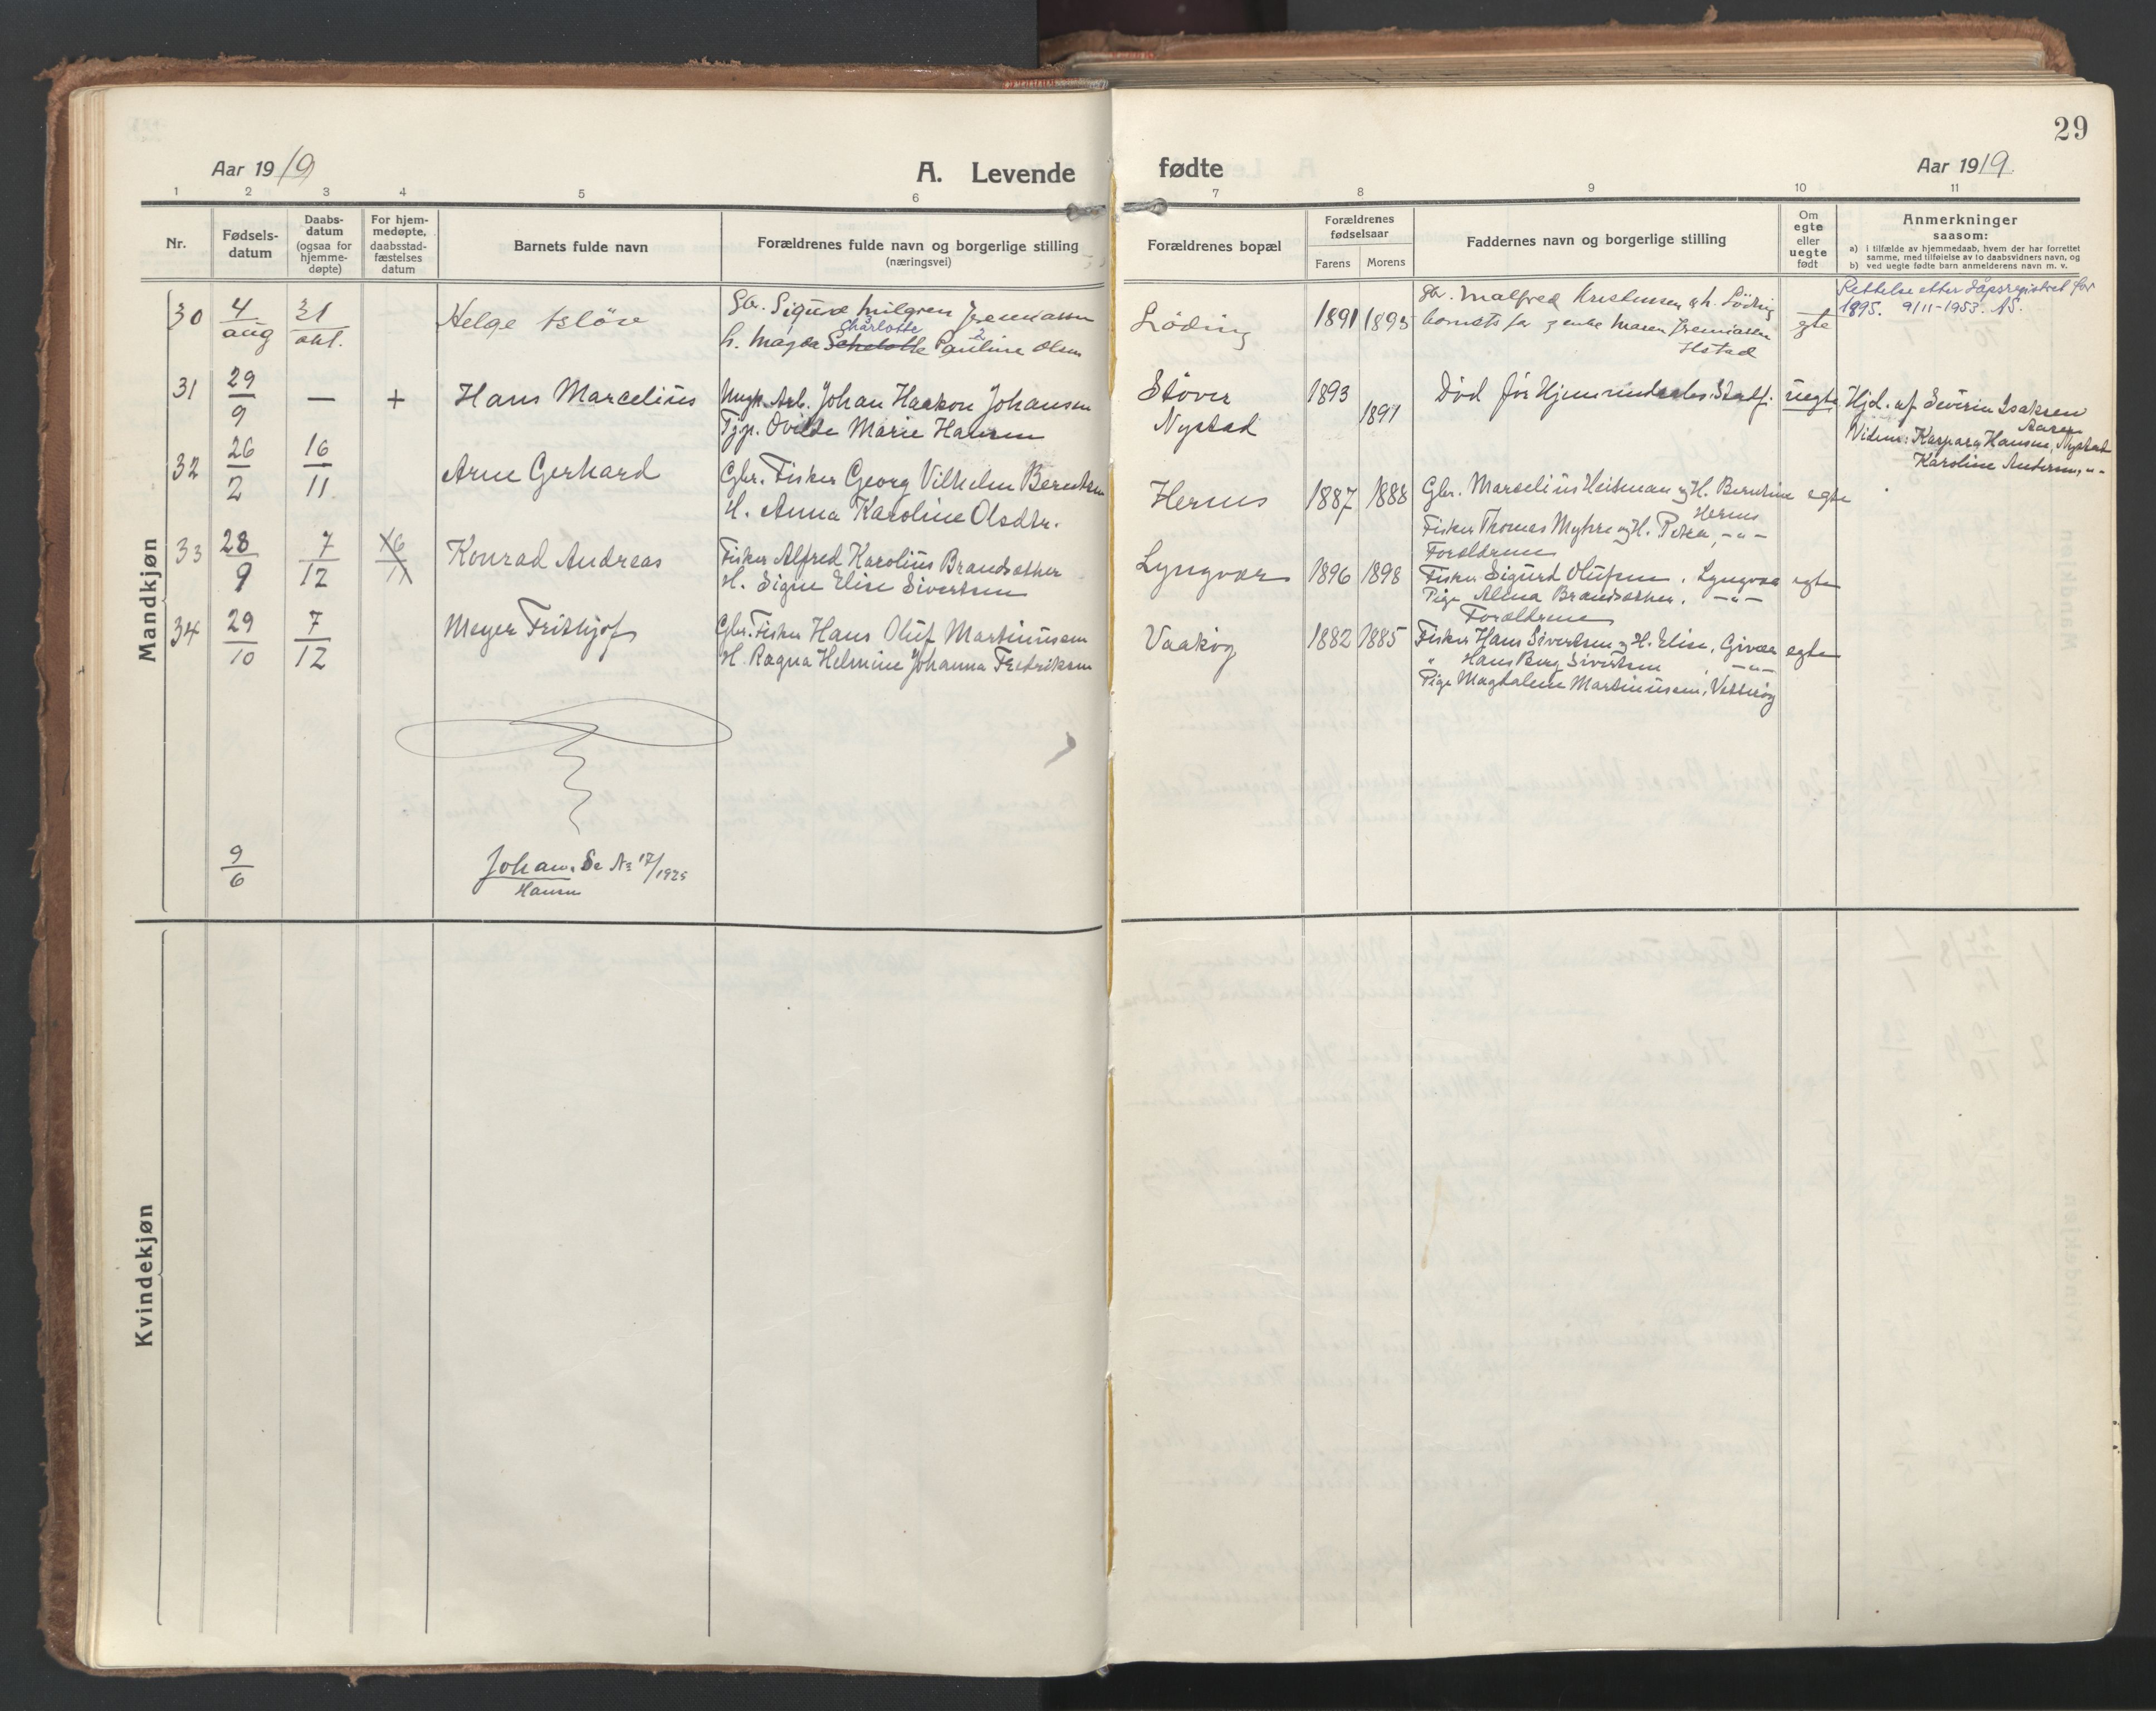 29
Aar 1919
A. Levende fødte
Aar 1919.
1 2 3 4 5 6 7 8 9 10 11
Nr.
Fødsels-
datum
Daabs-
datum
(ogsaa for
hjemme-
døpte)
For hjem-
medøpte,
daabsstad-
fæstelses
datum
Barnets fulde navn
Forældrenes fulde navn og borgerlige stilling
(næringsvei)
Forældrenes bopæl
Forældrenes
fødselsaar
Farens Morens
Faddernes navn og borgerlige stilling
Om
egte
eller
uegte
født
Anmerkninger
saasom:
a) i tilfælde av hjemmedaab, hvem der har forrettet
samme, med tilføielse av to daabsvidners navn, og
b) ved uegte fødte barn anmelderens navn m. v.
Mandkjøn
30 4/aug 31/okt. Helge
Gbr. Sigurd Milgren Jeremiassen
h. Magda Schelotte Charlotte Pauline Olsen
Löding 1891 1895
Gbr. Malfred Kristensen o h. Löding
barnets far og enke Maren Jeremiassen
Ilstad
egte
Rettelse etter dåpsregistret for
1895. 9/11-1953. AS.
31 29/9 — + Hans Marcelius
Ungk. Arb. Johan Haakon Johansen
Tjp. Ovilde Marie Hansen
Støver
Nystad
1893
1897
Død før Stadf.
uegte
Hjd. af Severin Isaksen
Vidner: Kaspara Hansen, Nystad
Karoline Andersen, -"-
32 26/2 16/11 Arne Gerhard
Gbr. Fisker Georg Vilhelm Berntsen
H. Anna Karoline Olsdtr.
Hernes 1887 1888
Gbr. Marselius Heitman og H. Berntine
Hernes
Fisker Thomas Myhre og H. Petra, -"-
Forældrene
egte
33 28/9 7/12 16/11 Konrad Andreas
Fisker Alfred Karolius Brandsæther
H. Signe Elise Sivertsen
Lyngvær 1896 1898
Fisker Sigurd Olufsen, Lyngvær
Pige Alma Brandsæther, -"-
Forældrene
egte
34 29/10 7/12 Meyer Frithjof
Gbr. Fisker Hans Oluf Martinussen
H. Ragna Helmine Johanna Fredriksen
Vaakøy 1882 1885
Fisker Hans Sivertsen og H. Elise, Givær
" Hans Berg Sivertsen, -"-
Pige Magdalene Martinussen,
egte
9/6 Johan. Se No 17/1925
Hansen
Kvindekjøn